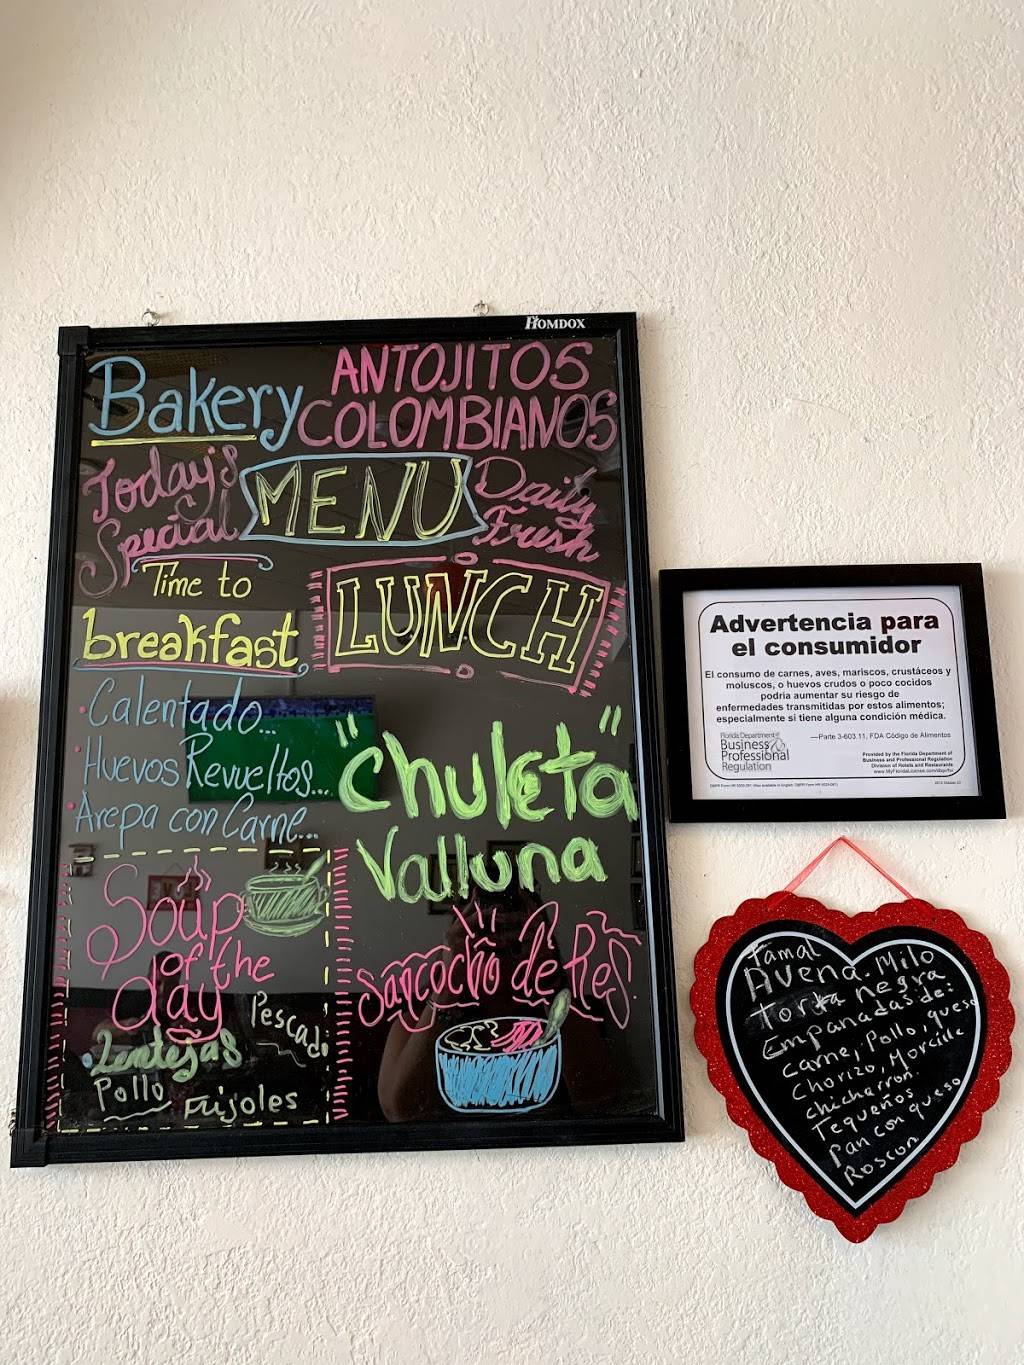 HOMDOX
Bakery
ANTOJITOS
COLOMBIANOS
Today's
Special
MENU
Daily
Fresh
Time to
breakfast
Calentado...
Huevos Revueltos...
Arepa con Carne...
LUNCH
"Chuleta"
Valluna
Sancocho de Res
Soup
of the
day
Pescado
Lentejas
Pollo
Frijoles
Advertencia para
el consumidor
El consumo de carnes, aves, mariscos, crustáceos y
moluscos, o huevos crudos o poco cocidos
podria aumentar su riesgo de
enfermedades transmitidas por estos alimentos;
especialmente si tiene alguna condición médica.
—Parte 3-603.11, FDA Código de Alimentos
Florida Department of
Business
Professional
Regulation
Provided by the Florida Department of
Business and Professional Regulation
Division of Hotels and Restaurants
www.MyFloridaLicense.com/dbpr/hr
Tamal
Avena. Milo
Torta Negra
Empanadas de:
carne, Pollo, queso
Chorizo, Morcilla
chicharron.
Tequeños
Pan con queso
Roscon